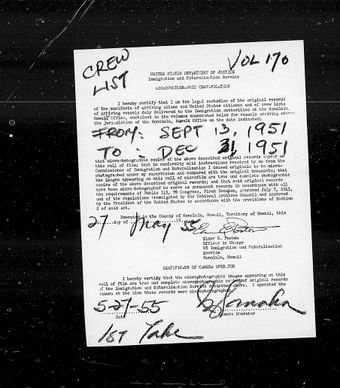 CREW
LIST
VOL 170
UNITED STATES DEPARTMENT OF JUSTICE
Immigration and Naturalization Service
MICROPHOTOGRAPHIC CERTIFICATION
I hereby certify that I am the legal custodian of the original records
of the manifests of arriving aliens and United States citizens and of crew lists
of arriving vessels duly delivered to the Immigration authorities at the Honolulu,
Hawaii Office, contained in the volumes enumerated below for vessels arriving
the jurisdiction of the Honolulu, Hawaii Office on the date indicated:
FROM: SEPT 13, 1951
TO: DEC 31 1951
that microphotographic copies of the above described original records appear on
this roll of film; that in conformity with instructions received by me from the
Commissioner of Immigration and Naturalization I caused originals to be micro-
photographed under my supervision and compared with the original documents; that
the images appearing on this roll of microfilm are true and complete photographic
copies of the above described original records; and that said original records
have been microphotographed to serve as permanent records in accordance with all
the requirements of Public 115, 78 Congress, First Session, approved July 7, 1943,
and of the regulations promulgated by the National Archives Council and approved
by the President of the United States in accordance with the provisions of Section
2 of said act.
Executed in the City and County of Honolulu, Territory of Hawaii, this
27 day of May 55
Officer in Charge
US Immigration and Naturalization
Service
Honolulu, Hawaii
CERTIFICATE OF CAMERA OPERATOR
I hereby certify that the microphotographic images appearing on this
roll of film are true and complete microphotographic copies of original records
of the Immigration and Naturalization Service described above. I operated the
camera at the time these records were microphotographed.
5-27-55
Date
Camera Operator
1st Take